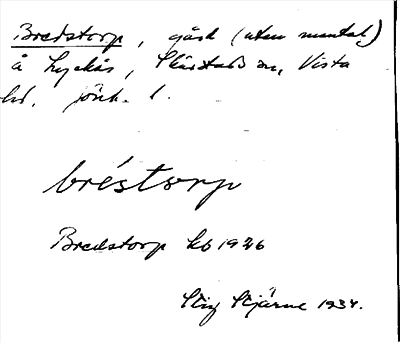 Bredstorp, gård (utan mantal)
å Lyckås, Skärstads sn, Vista
hd, Jönk. l.
bréstorp
Bredstorp kb 1926
Stig Stjärne 1934.